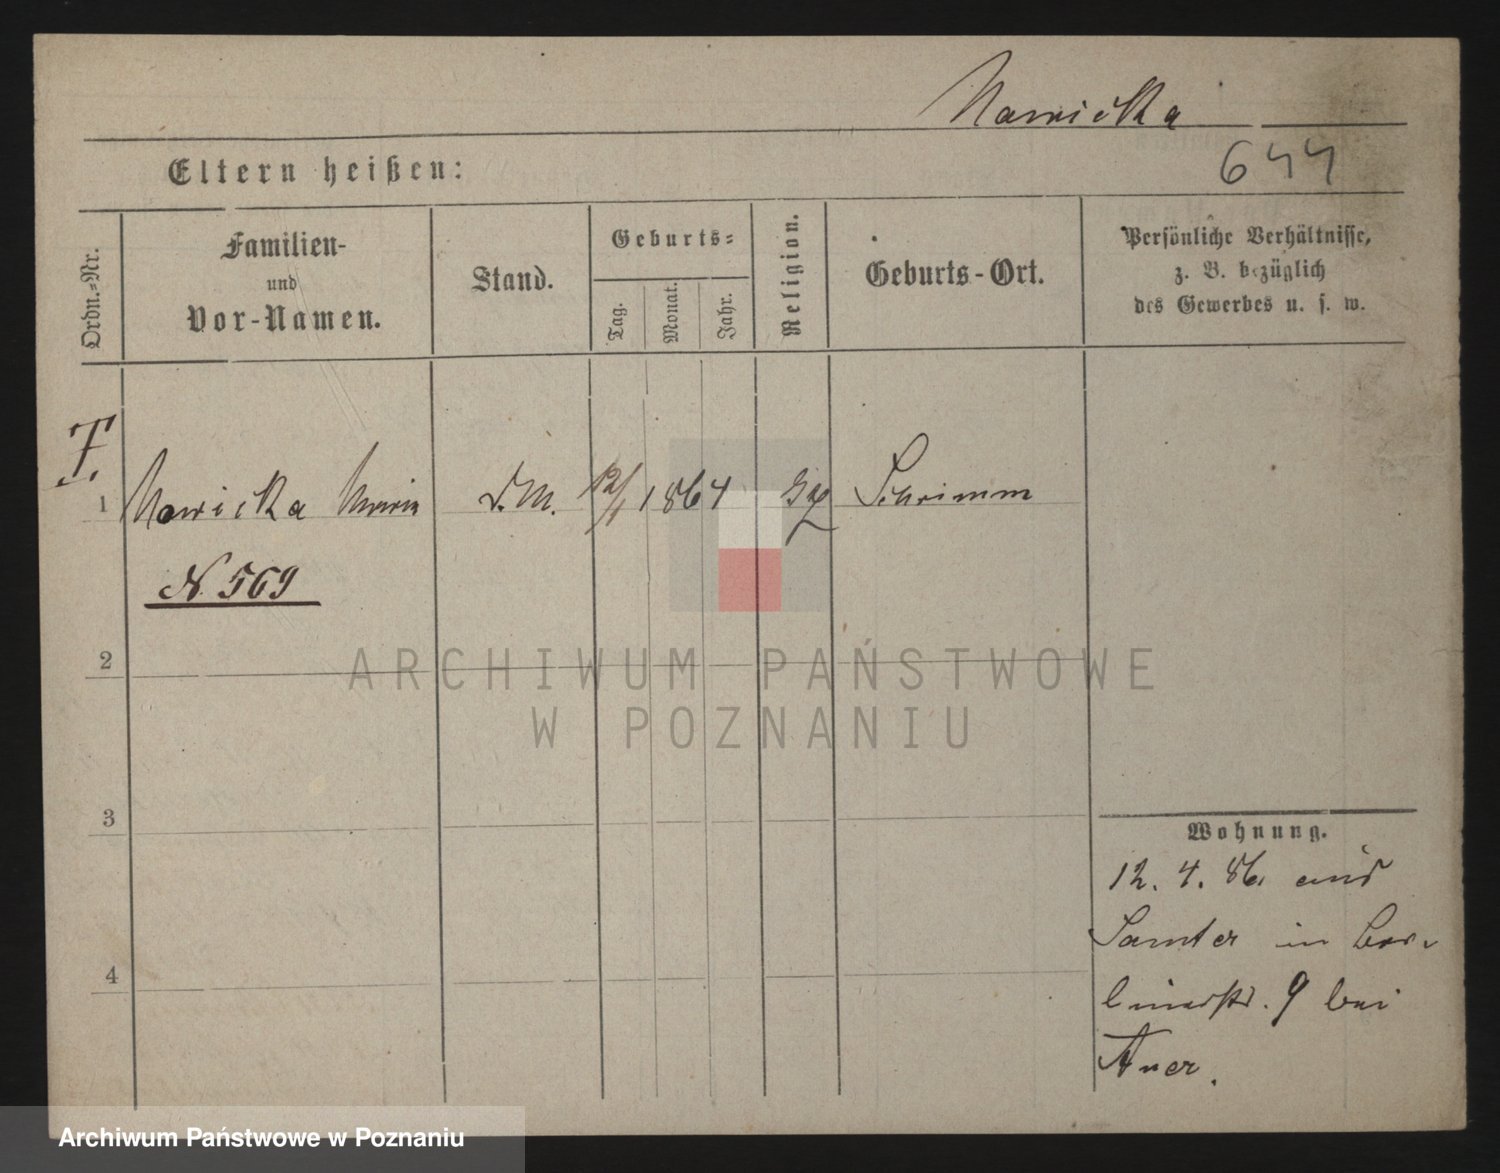 Nawicka
Eltern heißen:
644
Ordn.-Nr.
Familien-
und
Vor-Namen.
Stand.
Geburts-
Tag.
Monat.
Jahr.
Religion.
Geburts-Ort.
Persönliche Verhältnisse,
z. B. bezüglich
des Gewerbes u. s. w.
F.
1 Nawicka Maria D.M. 12/1 1864 Schrimm
N. 569
2
ARCHIWUM PAŃSTWOWE
W POZNANIU
3
Wohnung.
12. 4. 86. aus
Samter in Ber-
linerstr. 9 bei
4
Auer.
Archiwum Państwowe w Poznaniu